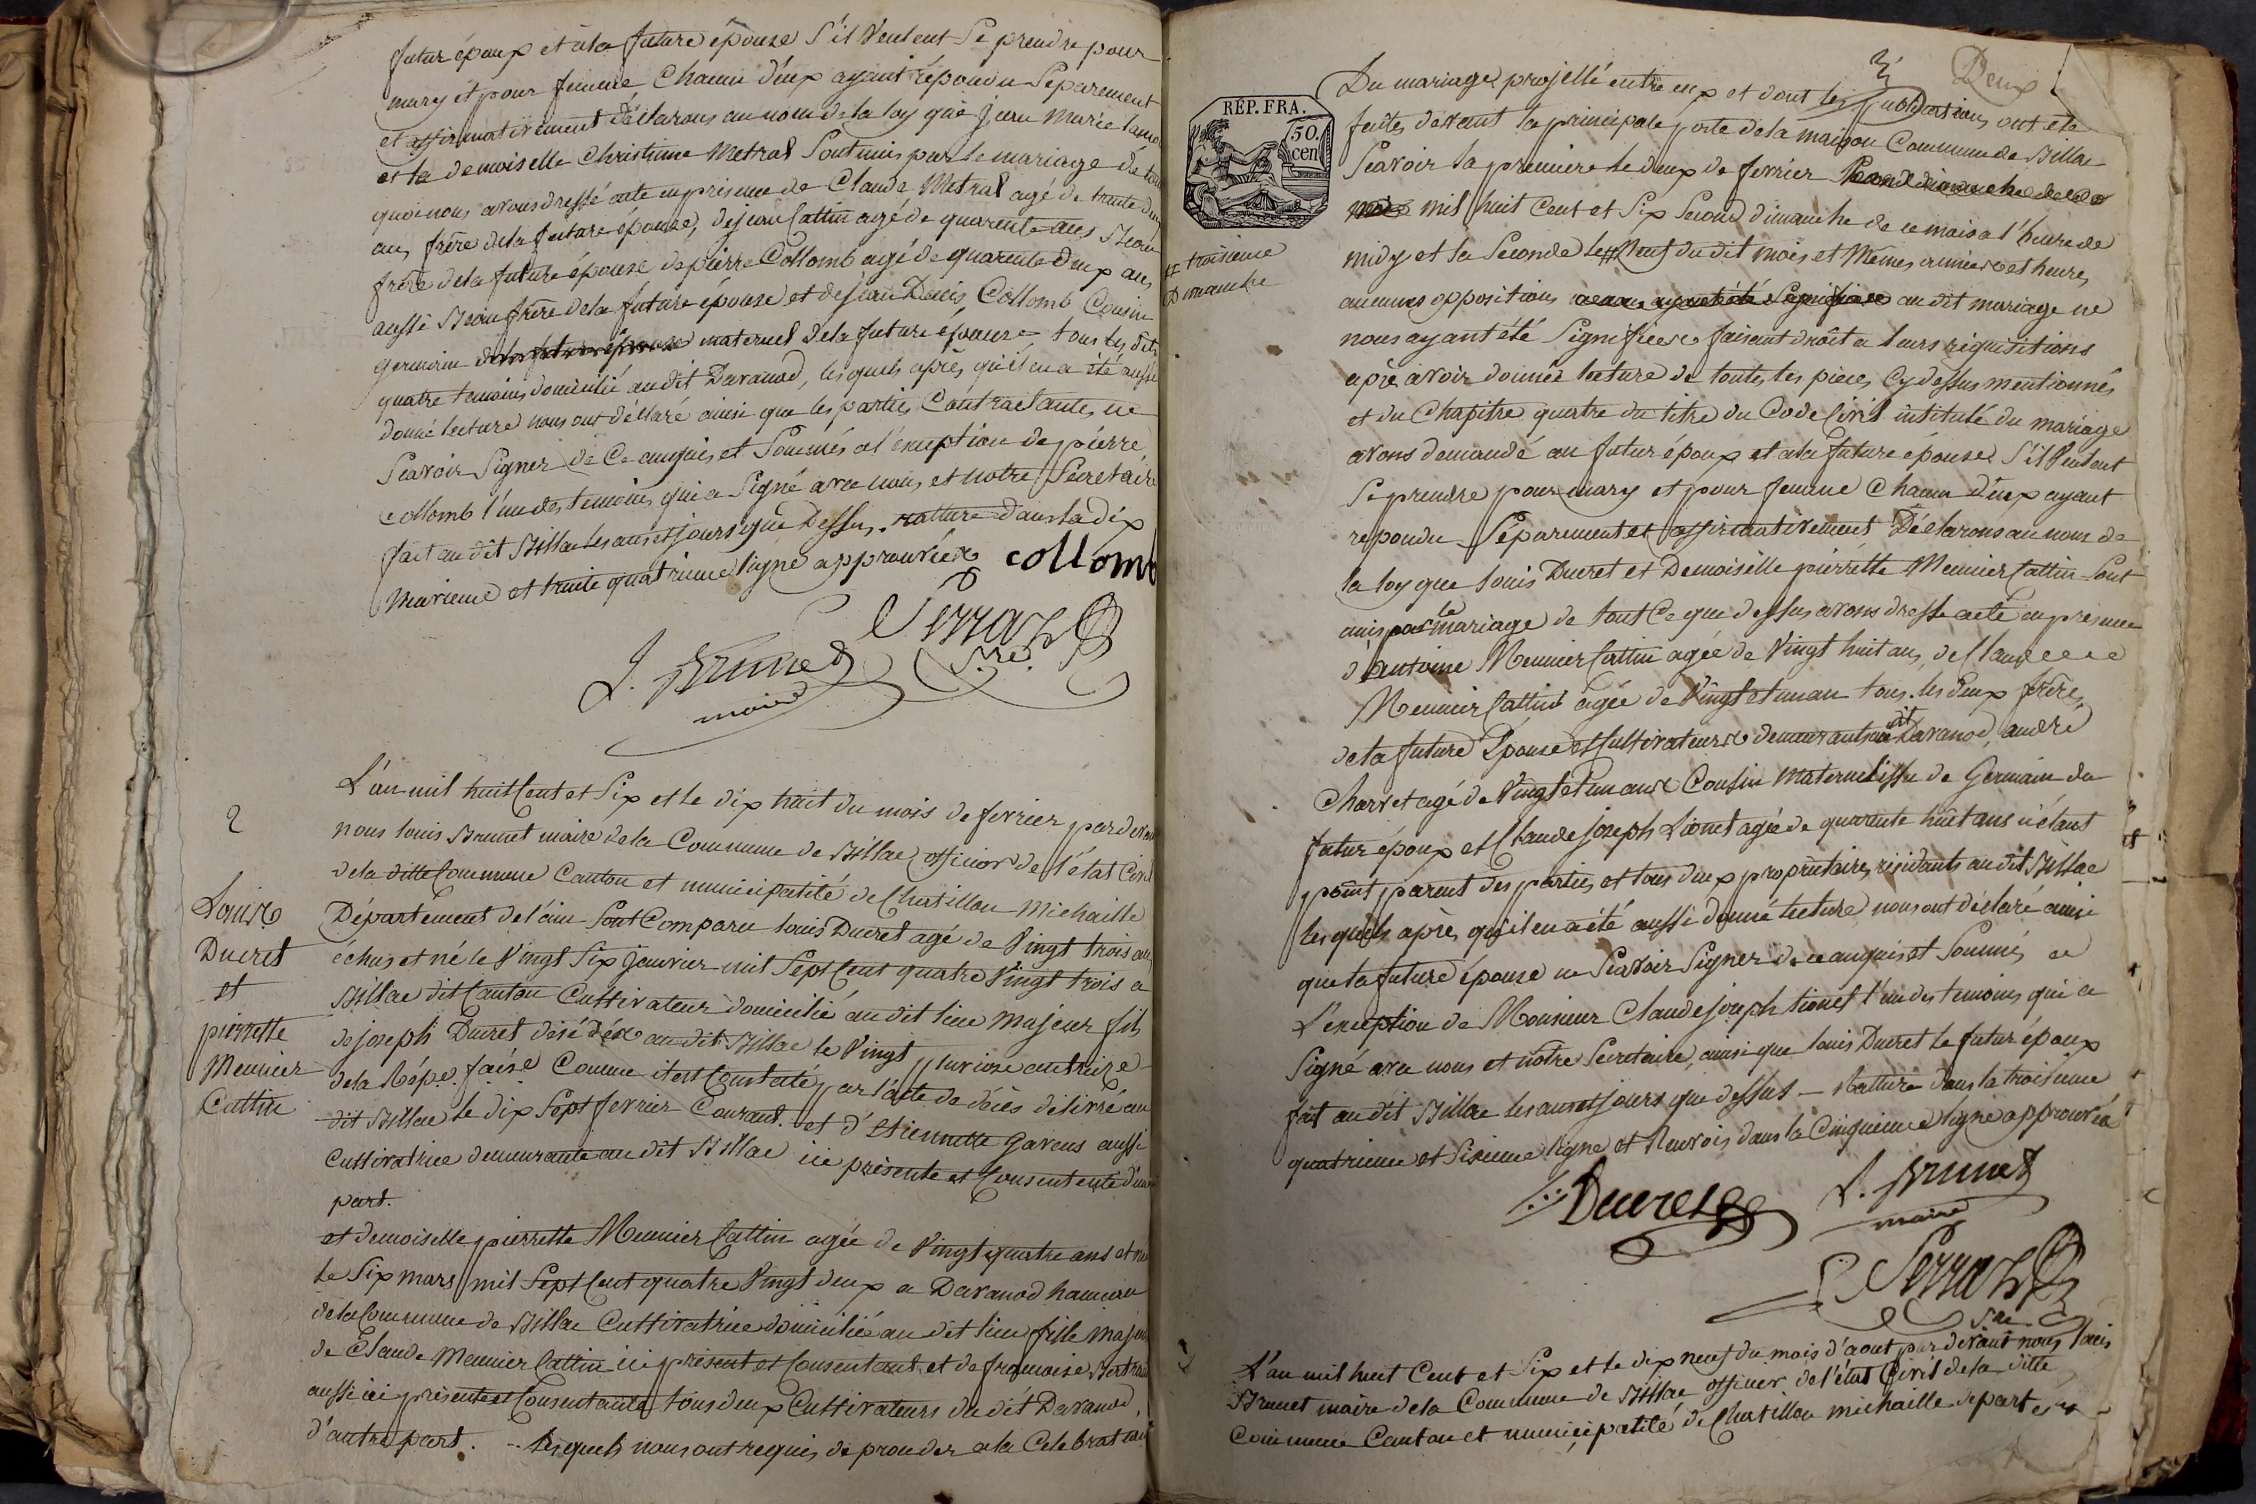 futur époux et à la future épouse s'il veulent se prendre pour
mary et pour femme, chacun d'eux ayant répondu séparement
et affirmativement déclarons au nom de la loy que jean Marie
et la demoiselle Christinne Metral sont unis par le mariage de
quoi nous avons dressé acte en presence de Claude Metral agé de trente
ans, frère de la future épouse, de jean Cattin agé de quarente ans Beau
frère de la future épouse de pierre Collomb agé de quarente deux ans
aussi Beaufrère de la future épouse et de jean Denis Collomb Cousin
germain de la future épouse maternel de la future épouse tous les dits
quatre temoins domicilié au dit Davanod, les quels après qu'il en a été aussi
donné lecture nous ont déclaré ainsi que les parties Contractantes ne
sçavoir signer de Ce enquis et sommés a l'exception de pierre
Collomb l'un des temoins qui a signé avec nous et notre secretaire
fait au dit Billac les ans et jours que dessus. rature dans la dix
neuvieme et trente quatrieme ligne approuvée
collomb
Perraz
S.re
L. Brunet
maire
2
Louis
Ducret
et
pierrette
Meunier
Cattin
L'an mil huit Cent et six et le dix huit du mois de fevrier par devant
nous louis Brunet maire de la Commune de Billac officier de l'état Civil
de la ditte Commune Canton et municipalité de Chatillon Michaille
Département de l'ain sont Comparu louis Ducret agé de vingt trois ans
échus et né le vingt six janvier mil sept Cent quatre vingt trois a
Billac dit Canton Cultivateur domicilié au dit lieu majeur fils
de joseph Ducret décédé au dit Billac le vingt pluviose an treize
de la Rép. fse Comme il est Constaté par l'acte de décès délivré au
dit Billac le dix sept fevrier Courant. et d'Etiennette Gavens aussi
Cultivatrice demeurante au dit Billac ici présente et Consentente d'une
part.
et demoiselle pierrette Meunier Cattin agée de vingt quatre ans et née
le six mars mil sept Cent quatre vingt deux a Davanod hameau
de la Commune de Billac Cultivatrice domicilié au dit lieu fille majeure
de Claude Meunier Cattin ici présent et Consentant et de françoise
aussi ici présente et Consentante tous deux Cultivateurs du dit Davanod,
d'autre part. Lesquels nous ont requis de proceder a la Celebration
3 Deux
RÉP. FRA.
50.
cen
Du mariage projetté entre eux et dont les publications ont été
faites devant la principale porte de la maison Commune de Billac
Sçavoir la premiere le deux de fevrier second dimanche de ce
mois mil huit Cent et six second dimanche de ce mois a l'heure de
midy et la seconde le # neuf du dit mois et mêmes année et heure
# troisieme
Dimanche
aucunes oppositions au dit mariage ne
nous ayant été signifiée faisant droit a leurs requisitions
après avoir donnée lecture de toutes les pieces Cy dessus mentionnés
et du Chapitre quatre du titre du Code Civil intitulé du mariage
avons demandé au futur époux et a la future épouse s'il veulent
se prendre pour mary et pour femme Chacun d'eux ayant
repondu séparement et affirmativement Déclarons au nom de
la loy que louis Ducret et Demoiselle pierrette Meunier Cattin sont
unis par le mariage de tout Ce que dessus avons dressé acte en presence
d'antoine Meunier Cattin agée de vingt huit ans, de Claude
Meunier Cattin agée de vingt et un an tous les deux frères
de la future Épouse et Cultivateurs demeurants au dit Davanod, andré
Charvet agé de vingt et un ans Cousin Maternel issu de Germain du
futur époux et Claude joseph Lionet agée de quarente huit ans n'étant
point parent des parties et tous deux propriétaires résidants au dit Billac
les quels après qu'il en a été aussi donné lecture nous ont déclaré ainsi
que la future épouse ne sçavoir signer de ce enquis et sommés a
L'exception de Monsieur Claude joseph lionet l'un des temoins qui a
signé avec nous et notre secretaire, ainsi que louis Ducret le futur époux
fait au dit Billac les ans et jours que dessus – Rature dans la troisieme
quatrieme et sixieme ligne et Renvois dans la Cinquieme ligne approuvée
Ducret
L. Brunet
maire
Perraz
S.re
L'an mil huit Cent et six et le dix neuf du mois d'aout par devant nous louis
Brunet maire de la Commune de Billac officier de l'état Civil de la ditte
Commune Canton et municipalité de Chatillon michaille departem